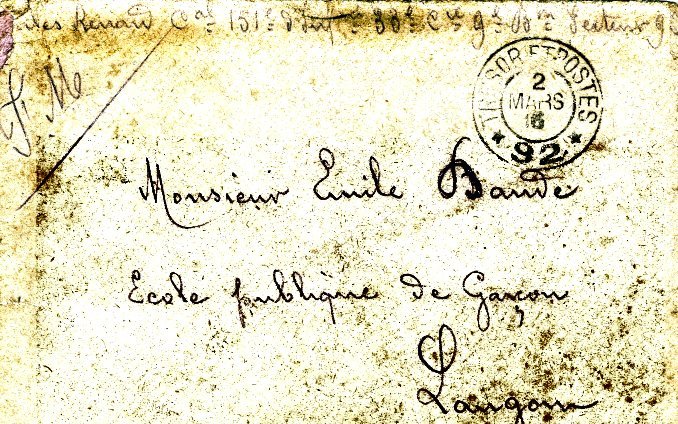 Jules Renard Cal 151e d'Infie 30e Cie 9e Bon Secteur 92
F. M
TRESOR ET POSTES
2
MARS
16
* 92 *
Monsieur Emile Baude
Ecole publique de Garçon
Langon